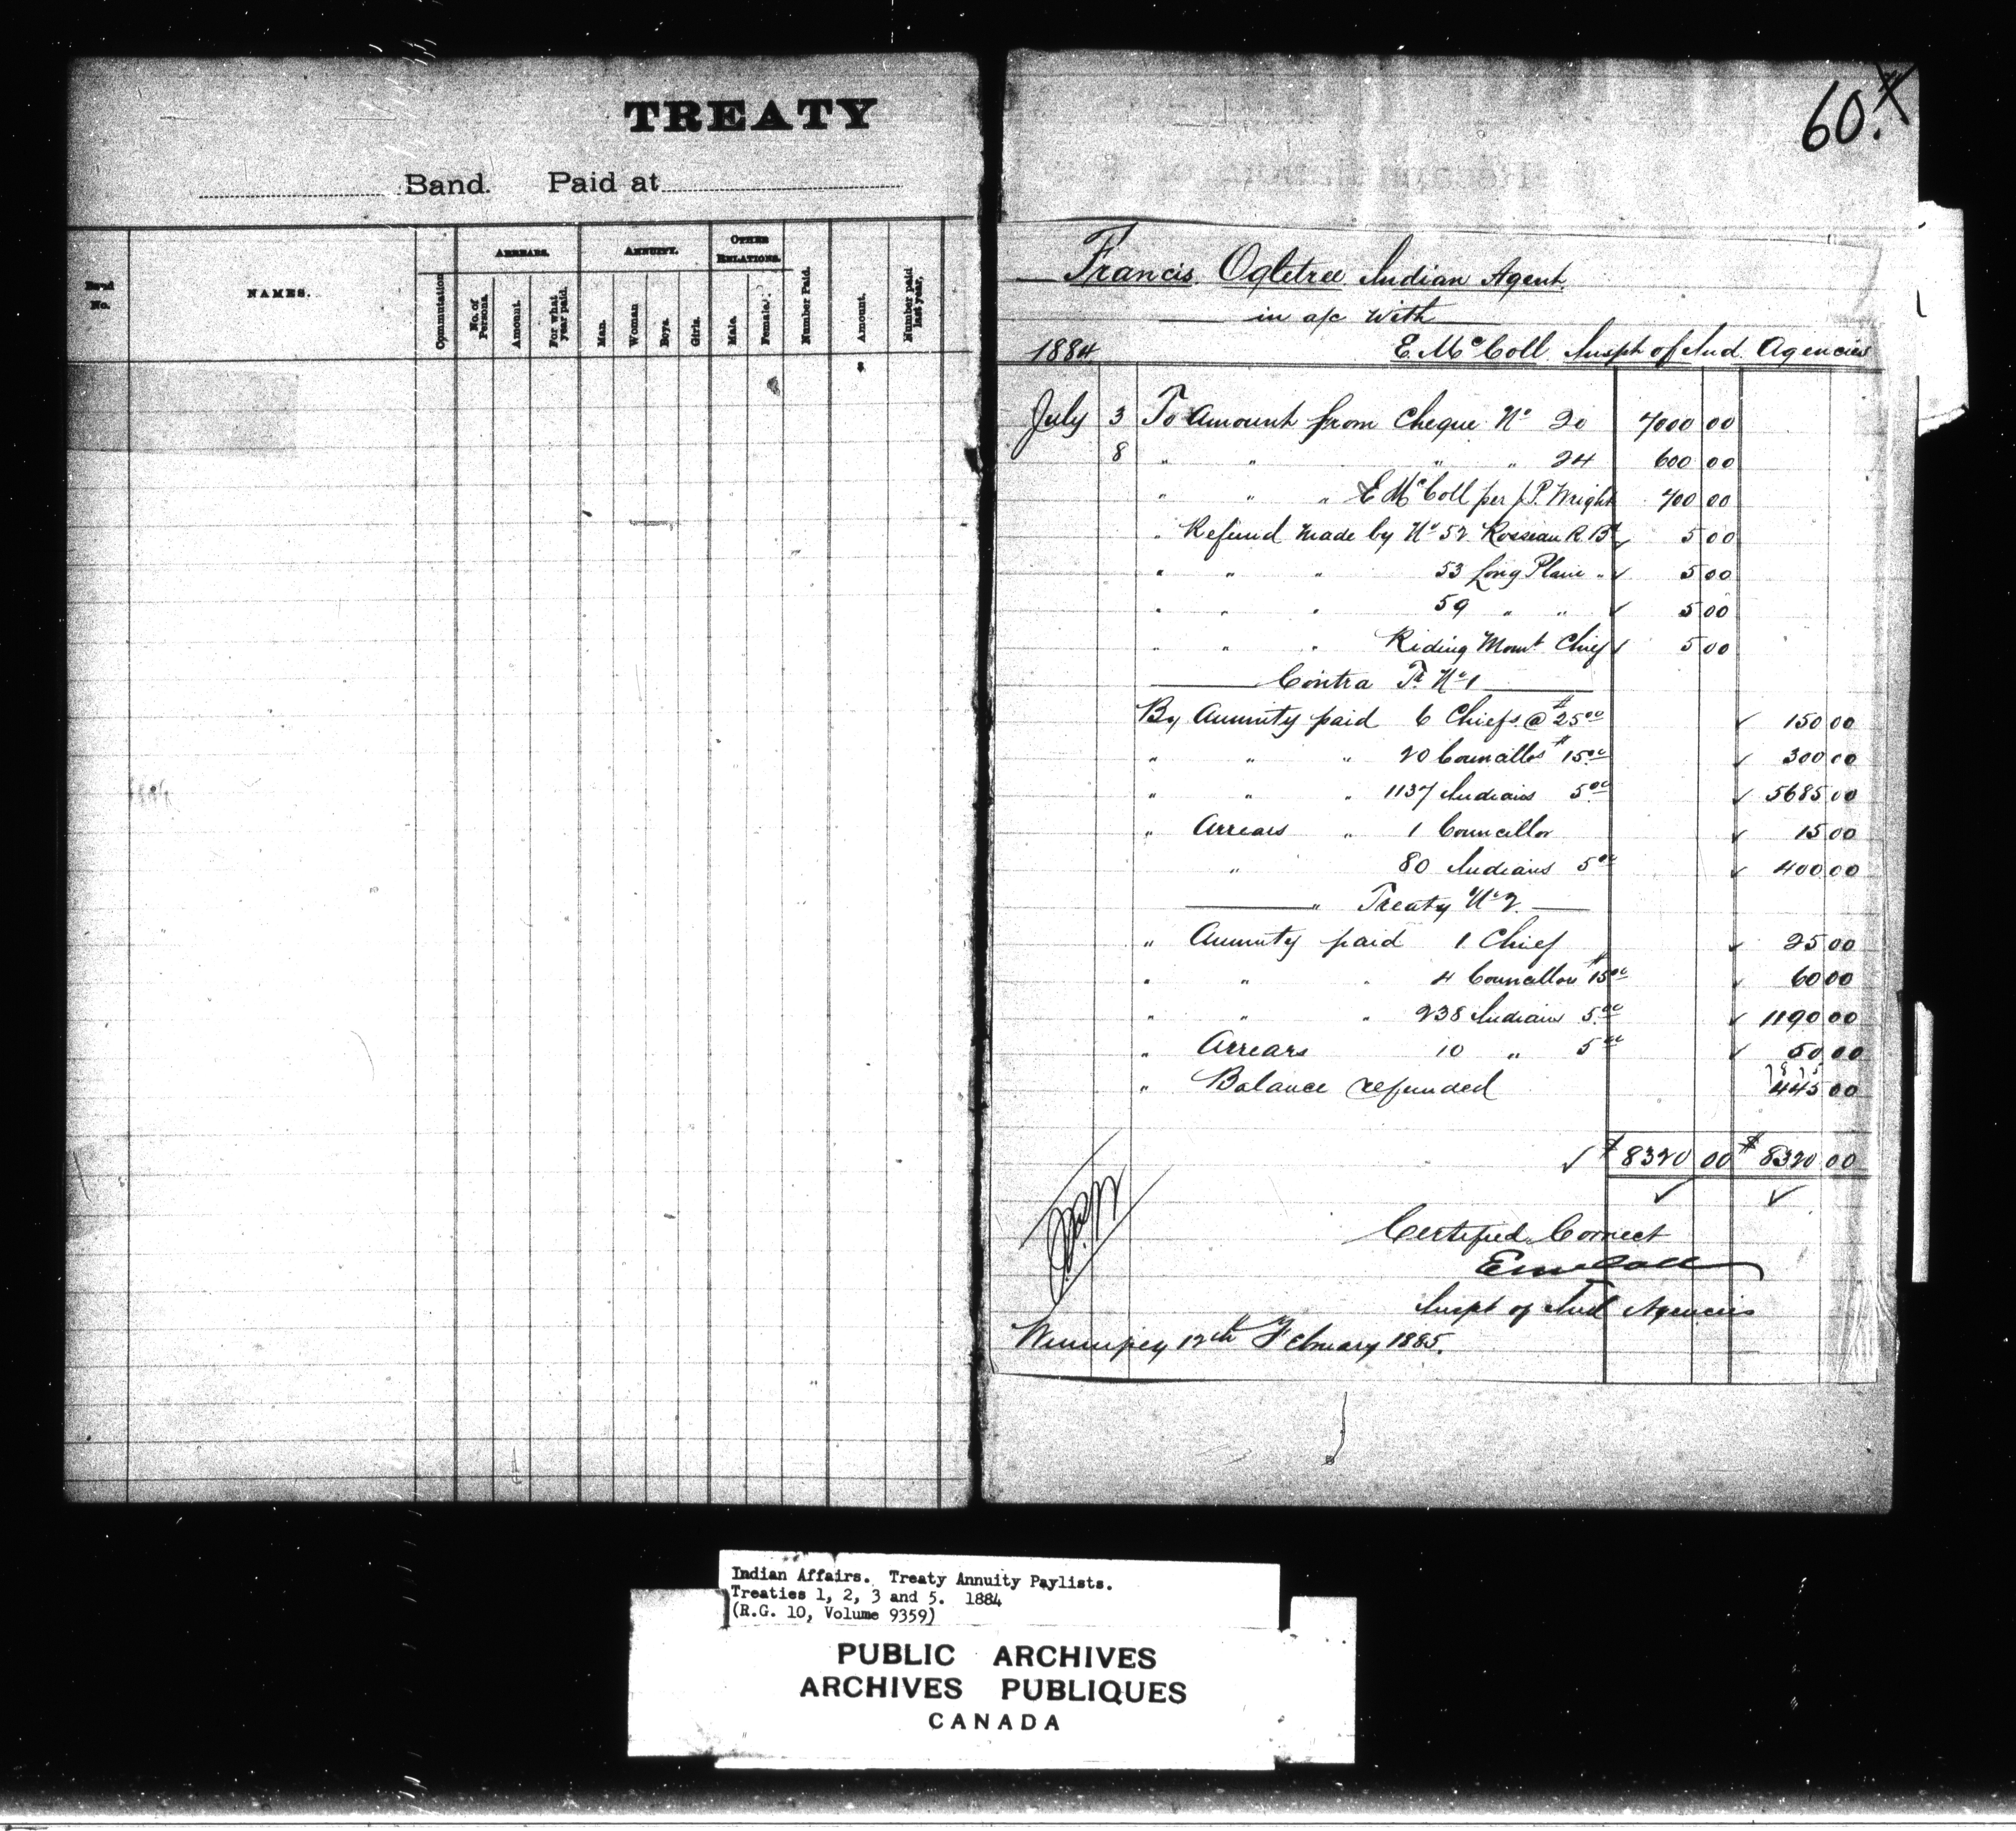 TREATY
Band. Paid at
Band No.
NAMES.
Commutation
ARREARS.
No. of Persons.
Amount.
For what year paid.
ANNUITY.
Man.
Woman
Boys.
Girls.
OTHER RELATIONS.
Male.
Female.
Number Paid.
Amount.
Number paid last year,
60.
Francis Ogletree Indian Agent
in a/c with
1884 E. McColl Inspt of Ind. Agencies
July 3 To Amount from Cheque No 20 7000 00
8 " " " " 24 600 00
" " " E McColl per J.P. Wright 700 00
" Refund made by No 52 Rosseau R. Bd ✓ 5 00
" " " 53 Long Plain " ✓ 5 00
" " " 59 " " ✓ 5 00
" " " Riding Mount Chief ✓ 5 00
Contra Tr. No 1
By Annuity paid 6 Chiefs @ $25 00 ✓ 150 00
" " " 20 Councillos $15 00 ✓ 300 00
" " " 1137 Indians 5 00 ✓ 5685 00
" Arrears " 1 Councillor ✓ 15 00
" 80 Indians 5 00 ✓ 400 00
" Treaty No 2
" Annuity paid 1 Chief ✓ 25 00
" " " 4 Councillors $15 00 ✓ 60 00
" " " 238 Indians 5 00 ✓ 1190 00
" Arrears 10 " 5 00 ✓ 50 00
7875
" Balance refunded 445 00
✓ $ 8320 00 $ 8320 00
✓ ✓
Certified Correct
E McColl
Inspt of Ind Agencies
Winnipeg 12th February 1885.
Indian Affairs. Treaty Annuity Paylists.
Treaties 1, 2, 3 and 5. 1884
(R.G. 10, Volume 9359)
PUBLIC ARCHIVES
ARCHIVES PUBLIQUES
CANADA